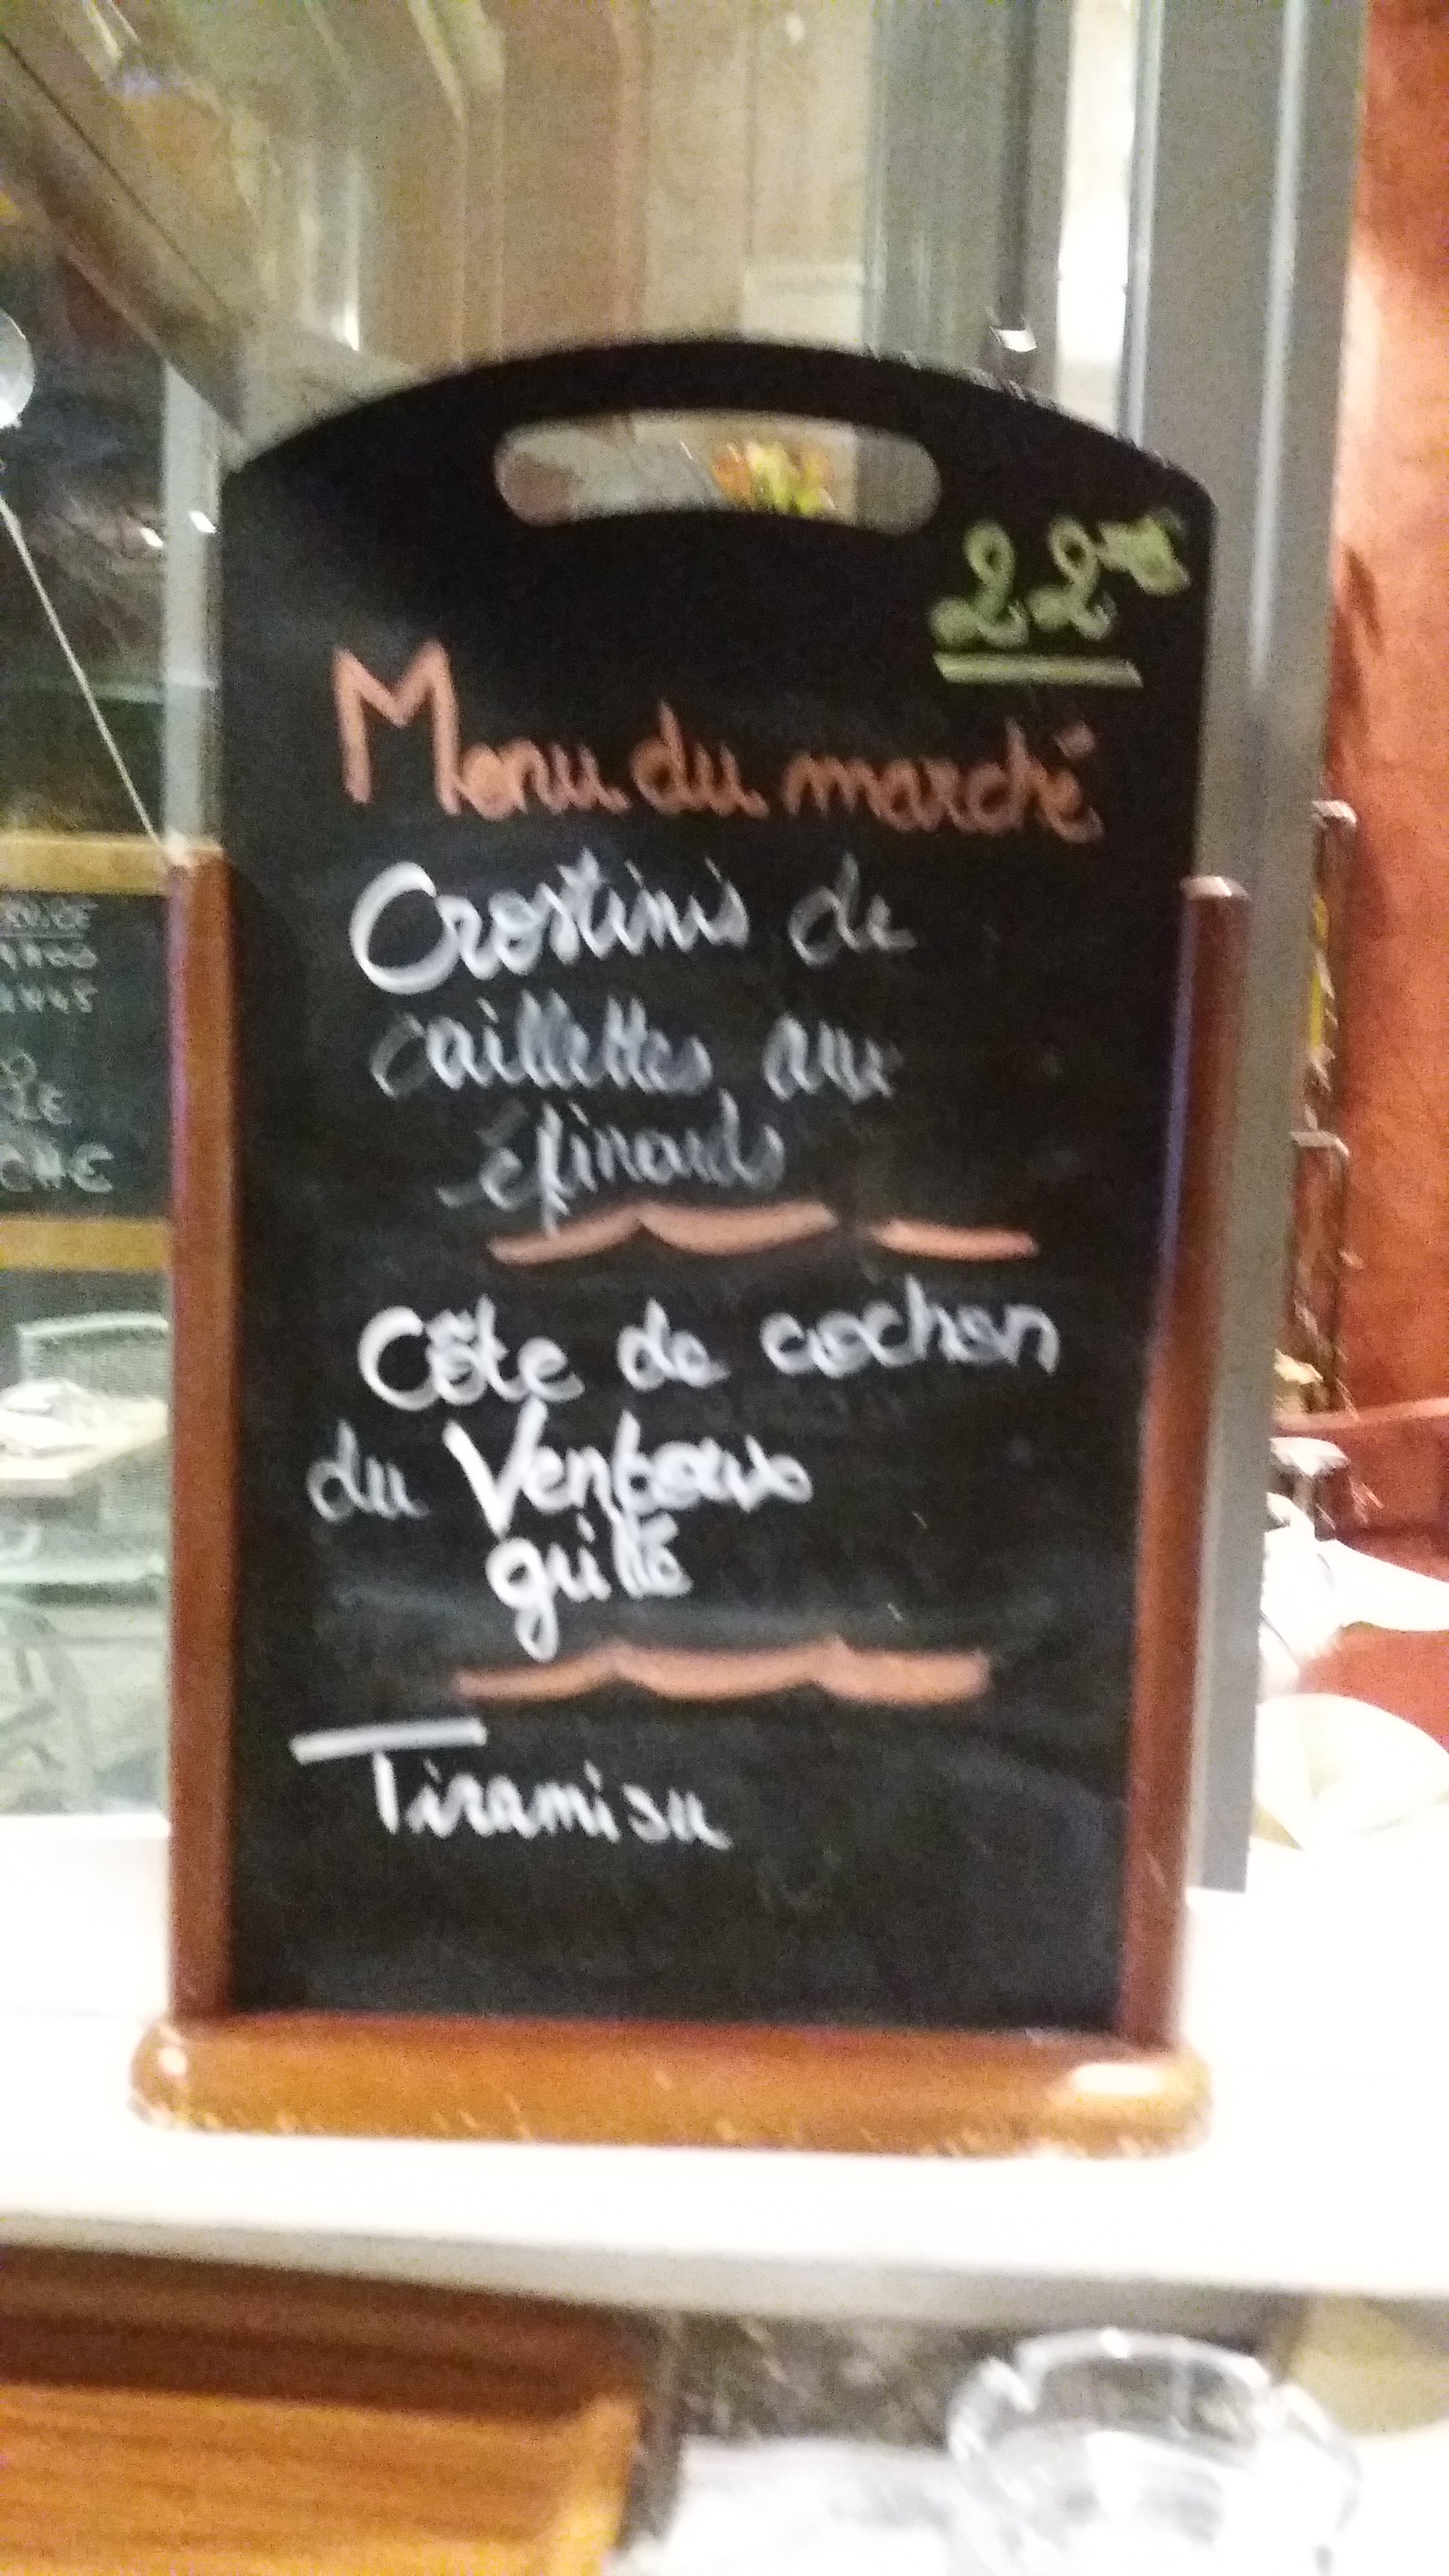 22
Menu du marché
Crostinis de
caillettes aux
épinards
Côte de cochon
du Ventoux
grillé
Tiramisu